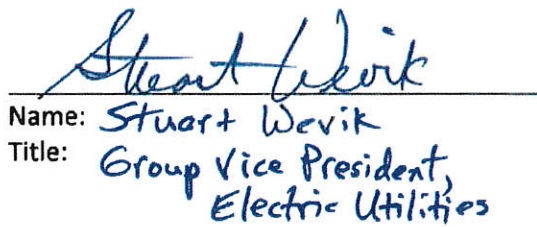 Stuart Wevik
Name: Stuart Wevik
Title: Group Vice President,
Electric Utilities